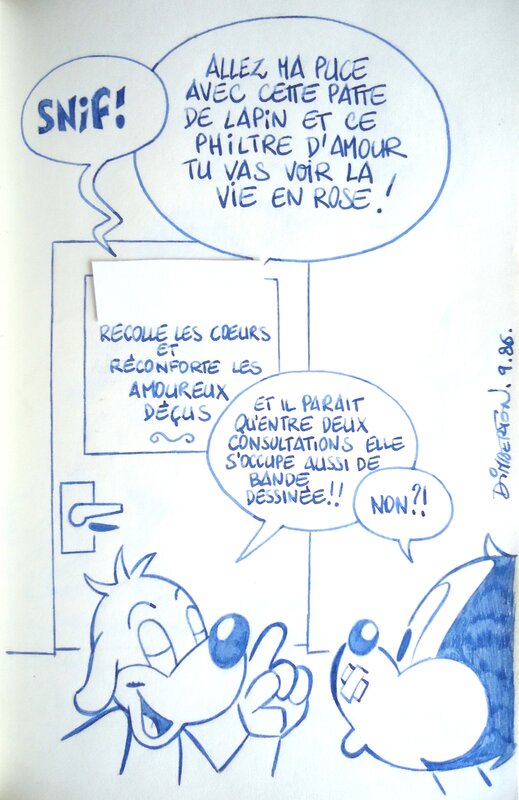 SNIF!
ALLEZ MA PUCE
AVEC CETTE PATTE
DE LAPIN ET CE
PHILTRE D'AMOUR
TU VAS VOIR LA
VIE EN ROSE!
RECOLLE LES COEURS
ET
RÉCONFORTE LES
AMOUREUX
DÉÇUS
ET IL PARAIT
QU'ENTRE DEUX
CONSULTATIONS ELLE
S'OCCUPE AUSSI DE
BANDE
DESSINÉE!!
NON?!
9.86.